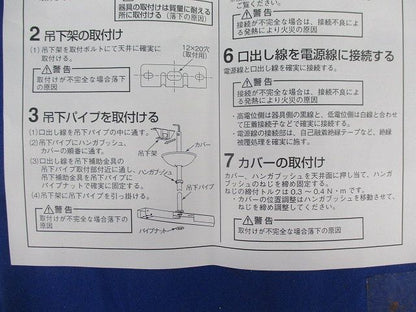 器具の取付けは質量に耐える
所に取付ける(落下の原因)
2 吊下架の取付け
(1)吊下架を取付ボルトにて天井に確実に
取付ける。
12×20穴
(取付用)
警告
取付けが不完全な場合落下の原因
3 吊下パイプを取付ける
(1)口出し線を吊下パイプの中に通す。
(2)吊下パイプにハンガブッシュ、
カバーの順番に通す。
(3)口出し線を吊下補助金具の
吊下パイプ取付部付近に通し、
吊下補助金具を吊下パイプに
パイプナットで確実に固定する。
(4)吊下架に吊下パイプを引っ掛ける。
警告
取付けが不完全な場合落下の
原因
吊下架
カバー
ハンガブッシュ
吊下パイプ
パイプナット
ご覧ください。
警告
接続が不完全な場合は、接続不良に
よる発熱により火災の原因
6 口出し線を電源線に接続する
電源線と口出し線を確実に接続する。
警告
接続が不完全な場合は、接続不良に
よる発熱により火災の原因
・高電位側は器具側の黒線と、低電位側は白線と合わせ
て圧着接続子などで確実に接続する。
・電源線の接続部は、自己融着絶縁テープなどで、絶縁
被覆処理を確実に行う。
7 カバーの取付け
カバー、ハンガブッシュを天井面に押し当て、ハンガ
ブッシュのねじを締め固定する。
ねじの締付トルクは0.3~0.4N・mです。
・カバーの位置調整はハンガブッシュを移動させて、
ねじを締め調整してください。
警告
取付けが不完全な場合落下の原因